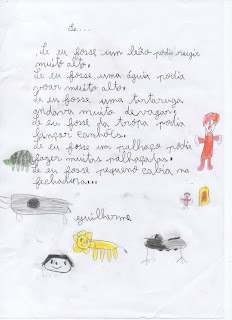 Se...
Se eu fosse um leão podia rugir
muito alto.
Se eu fosse uma águia podia
voar muito alto.
Se eu fosse uma tartaruga
andava muito devagar.
Se eu fosse da tropa podia
lançar canhões.
Se eu fosse um palhaço podia
fazer muitas palhaçadas.
Se eu fosse pequeno cabia na
fechadura...
Guilherme